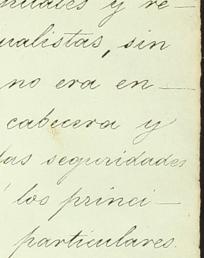 nuales y re-
ualistas, sin
no era en-
cabecera y
las seguridades
los princi-
particulares.